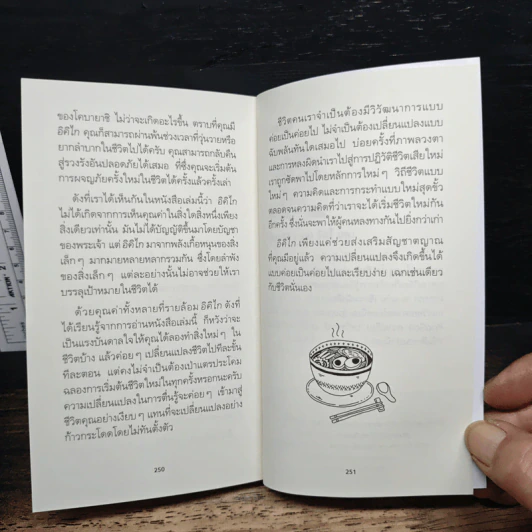 ของโคบายาชิ ไม่ว่าจะเกิดอะไรขึ้น ตราบที่คุณมี
อิคิไก คุณก็สามารถผ่านพ้นช่วงเวลาที่วุ่นวายหรือ
ยากลำบากในชีวิตไปได้ครับ คุณสามารถกลับคืน
สู่รวงรังอันปลอดภัยได้เสมอ ที่ซึ่งคุณจะเริ่มต้น
การผจญภัยครั้งใหม่ในชีวิตได้ครั้งแล้วครั้งเล่า
ดังที่เราได้เห็นกันในหนังสือเล่มนี้ว่า อิคิไก
ไม่ได้เกิดจากการเห็นคุณค่าในสิ่งใดสิ่งหนึ่งเพียง
สิ่งเดียวเท่านั้น มันไม่ได้บัญญัติขึ้นมาโดยบัญชา
ของพระเจ้า แต่ อิคิไก มาจากพลังเกื้อหนุนของสิ่ง
เล็กๆ มากมายหลายหลากรวมกัน ซึ่งโดยลำพัง
ของสิ่งเล็กๆ แต่ละอย่างนั้นไม่อาจช่วยให้เรา
บรรลุเป้าหมายในชีวิตได้
ด้วยคุณค่าทั้งหลายที่รายล้อม อิคิไก ดังที่
ได้เรียนรู้จากการอ่านหนังสือเล่มนี้ ก็หวังว่าจะ
เป็นแรงบันดาลใจให้คุณได้ลองทำสิ่งใหม่ๆ ใน
ชีวิตบ้าง แล้วค่อยๆ เปลี่ยนแปลงชีวิตไปทีละขั้น
ทีละตอน แต่คงไม่จำเป็นต้องเป่าแตรประโคม
ฉลองการเริ่มต้นชีวิตใหม่ในทุกครั้งหรอกนะครับ
ความเปลี่ยนแปลงในการตื่นรู้จะค่อยๆ เข้ามาสู่
ชีวิตคุณอย่างเงียบๆ แทนที่จะเปลี่ยนแปลงอย่าง
ก้าวกระโดดโดยไม่ทันตั้งตัว
250
ชีวิตคนเราจำเป็นต้องมีวิวัฒนาการแบบ
ค่อยเป็นค่อยไป ไม่จำเป็นต้องเปลี่ยนแปลงแบบ
ฉับพลันทันใดเสมอไป บ่อยครั้งที่ภาพลวงตา
และการหลงผิดนำเราไปสู่การปฏิวัติชีวิตเสียใหม่
เราถูกชัดพาไปโดยหลักการใหม่ๆ วิถีชีวิตแบบ
ใหม่ๆ ความคิดและการกระทำแบบใหม่สุดขั้ว
ตลอดจนความคิดที่ว่าเราจะได้เริ่มชีวิตใหม่กัน
อีกครั้ง ซึ่งนั่นจะพาให้ผู้คนหลงทางกันไปยิ่งกว่าเก่า
อิคิไก เพียงแค่ช่วยส่งเสริมสัญชาตญาณ
ที่คุณมีอยู่แล้ว ความเปลี่ยนแปลงจึงเกิดขึ้นได้
แบบค่อยเป็นค่อยไปและเรียบง่าย เฉกเช่นเดียว
กับชีวิตนั่นเอง
251